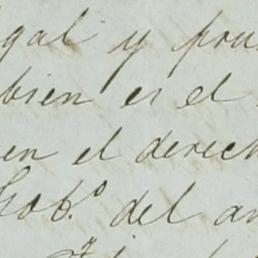 gal y pru
bien es el
en el derech
Gob.º del an